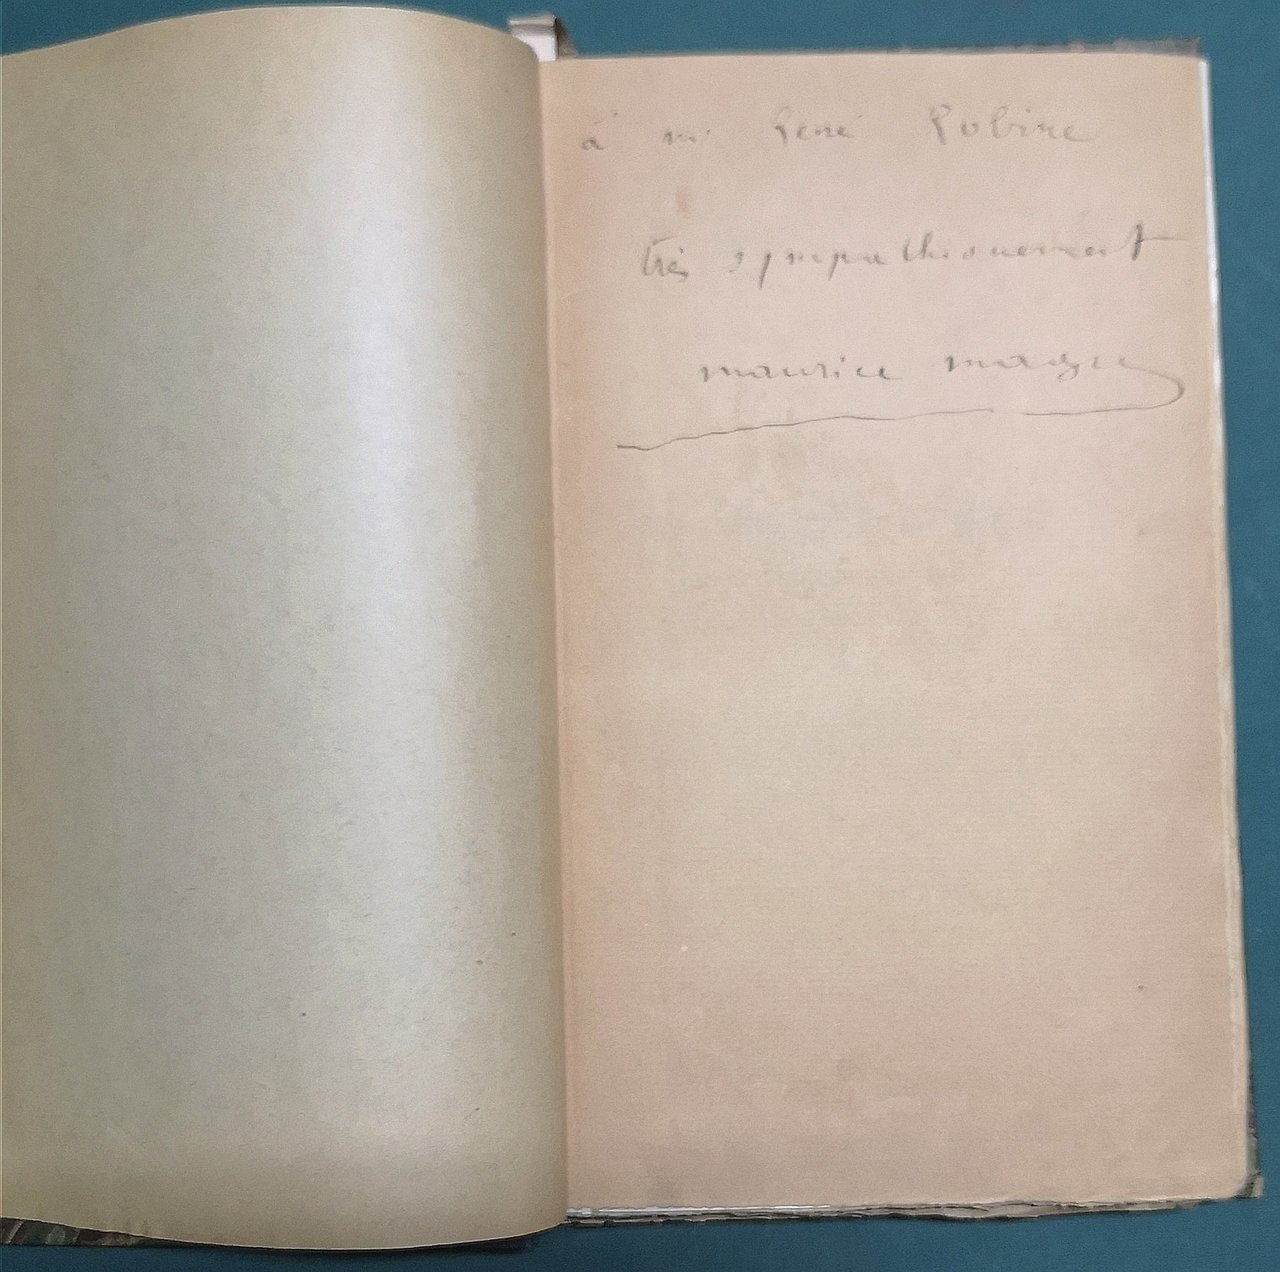 à mr René Robine
très sympathiquement
maurice magre